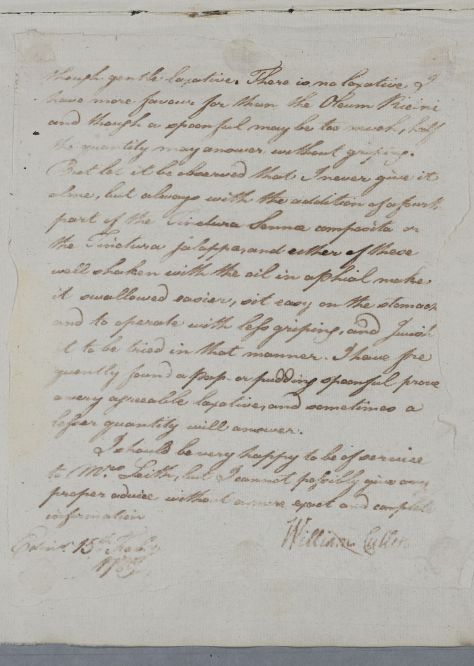 though gentle laxative. There is no laxative I
have more favour for than the Oleum Ricini
and though a spoonful may be too much, half
the quantity may answer without griping.
But let it be observed that I never give it
alone, but always with the addition of a fourth
part of the Tinctura Senna composita or
the Tinctura Jalappa, and either of these
well shaken with the oil in a phial make
it swallowed easier, sit easy on the stomach
and to operate with less griping, and I wish
it to be tried in that manner. I have fre
quently found a pap or pudding spoonful prove
a very agreeable laxative, and sometimes a
lesser quantity will answer.
I should be very happy to be of service
to Mrs. Leith, but I cannot possibly give any
proper advice without a more exact and complete
information
Edinr. 15th Feby
William Cullen